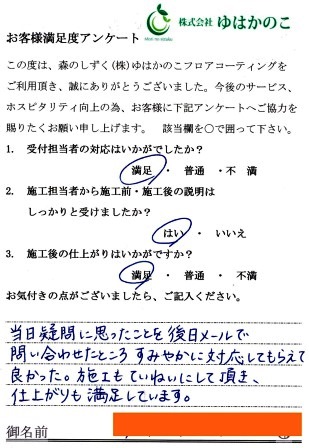 株式会社 ゆはかのこ
mori no sizuku
お客様満足度アンケート
この度は、森のしずく(株)ゆはかのこフロアコーティングを
ご利用頂き、誠にありがとうございました。今後のサービス、
ホスピタリティ向上の為、お客様に下記アンケートへご協力を
賜りたくお願い申し上げます。 該当欄を○で囲って下さい。
1. 受付担当者の対応はいかがでしたか?
満足 ・ 普通 ・ 不 満
2. 施工担当者から施工前・施工後の説明は
しっかりと受けましたか?
はい ・ いいえ
3. 施工後の仕上がりはいかがですか?
満足 ・ 普通 ・ 不満
お気付きの点がございましたら、ご記入ください。
当日疑問に思ったことを後日メールで
問い合わせたところ すみやかに対応してもらえて
良かった。施工もていねいにして頂き、
仕上がりも満足しています。
御名前